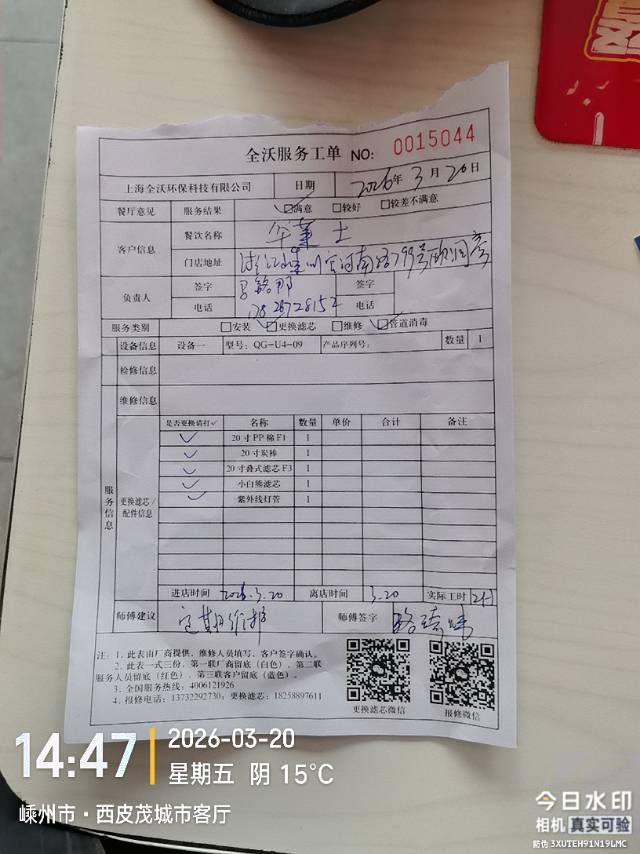 全沃服务工单 NO: 0015044
上海全沃环保科技有限公司 日期 2026年 3月 20日
餐厅意见 服务结果 ☑满意 □较好 □较差不满意
客户信息 餐饮名称 华莱士
门店地址
负责人 签字 签字
电话 电话
服务类别 □安装 ☑更换滤芯 □维修 ☑管道消毒
设备信息 设备一 型号: QG-U4-09 产品序列号: 数量 1
检修信息
维修信息
服务信息
更换滤芯/配件信息
是否更换请打✓ 名称 数量 单价 合计 备注
✓ 20寸PP棉F1 1
✓ 20寸炭棒 1
✓ 20寸叠式滤芯F3 1
✓ 小白熊滤芯 1
✓ 紫外线灯管 1
进店时间 2026.3.20 离店时间 3.20 实际工时
师傅建议 定期维护 师傅签字
注: 1. 此表由厂商提供、维修人员填写、客户签字确认。
2. 此表一式三份, 第一联厂商留底（白色）、第二联
服务人员留底（红色）、第三联客户留底（蓝色）。
3. 全国服务热线: 4006121926
4. 报修电话: 13732292730; 更换滤芯: 18258897611
更换滤芯微信 报修微信
14:47 2026-03-20
星期五 阴 15℃
嵊州市·西皮茂城市客厅
今日水印
相机 真实可验
防伪 3XUTEH91N19LMC